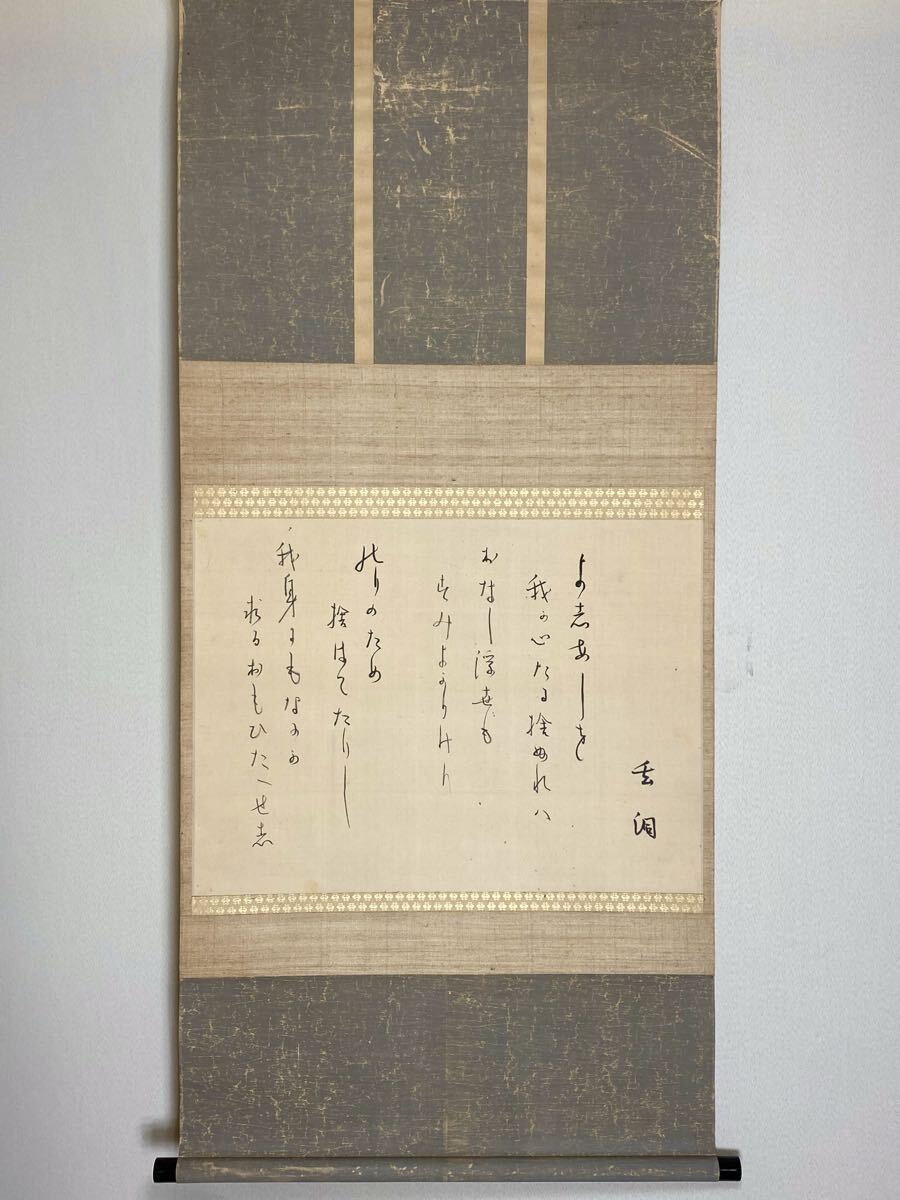 よの志あしを
我か心たに捨ぬれハ
おなし浮世も
すみよかりけり
のりのため
捨はてたりし
我身にも
求るおもひたへせ志